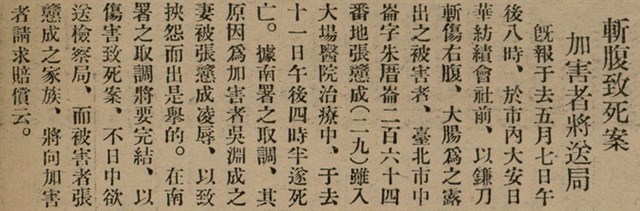 斬腹致死案
加害者將送局
旣報于去五月七日午
後八時、於市內大安日
華紡績會社前、以鐮刀
斬傷右腹、大腸爲之露
出之被害者、臺北市中
崙字朱厝崙二百六十四
番地張戇成(二九)雖入
大場醫院治療中、于去
十一日午後四時半遂死
亡。據南署之取調、其
原因爲加害者吳淵成之
妻被張戇成凌辱、以致
挾怨而出是舉的。在南
署之取調將要完結、以
傷害致死案、不日中欲
送檢察局、而被害者張
戇成之家族、將向加害
者請求賠償云。